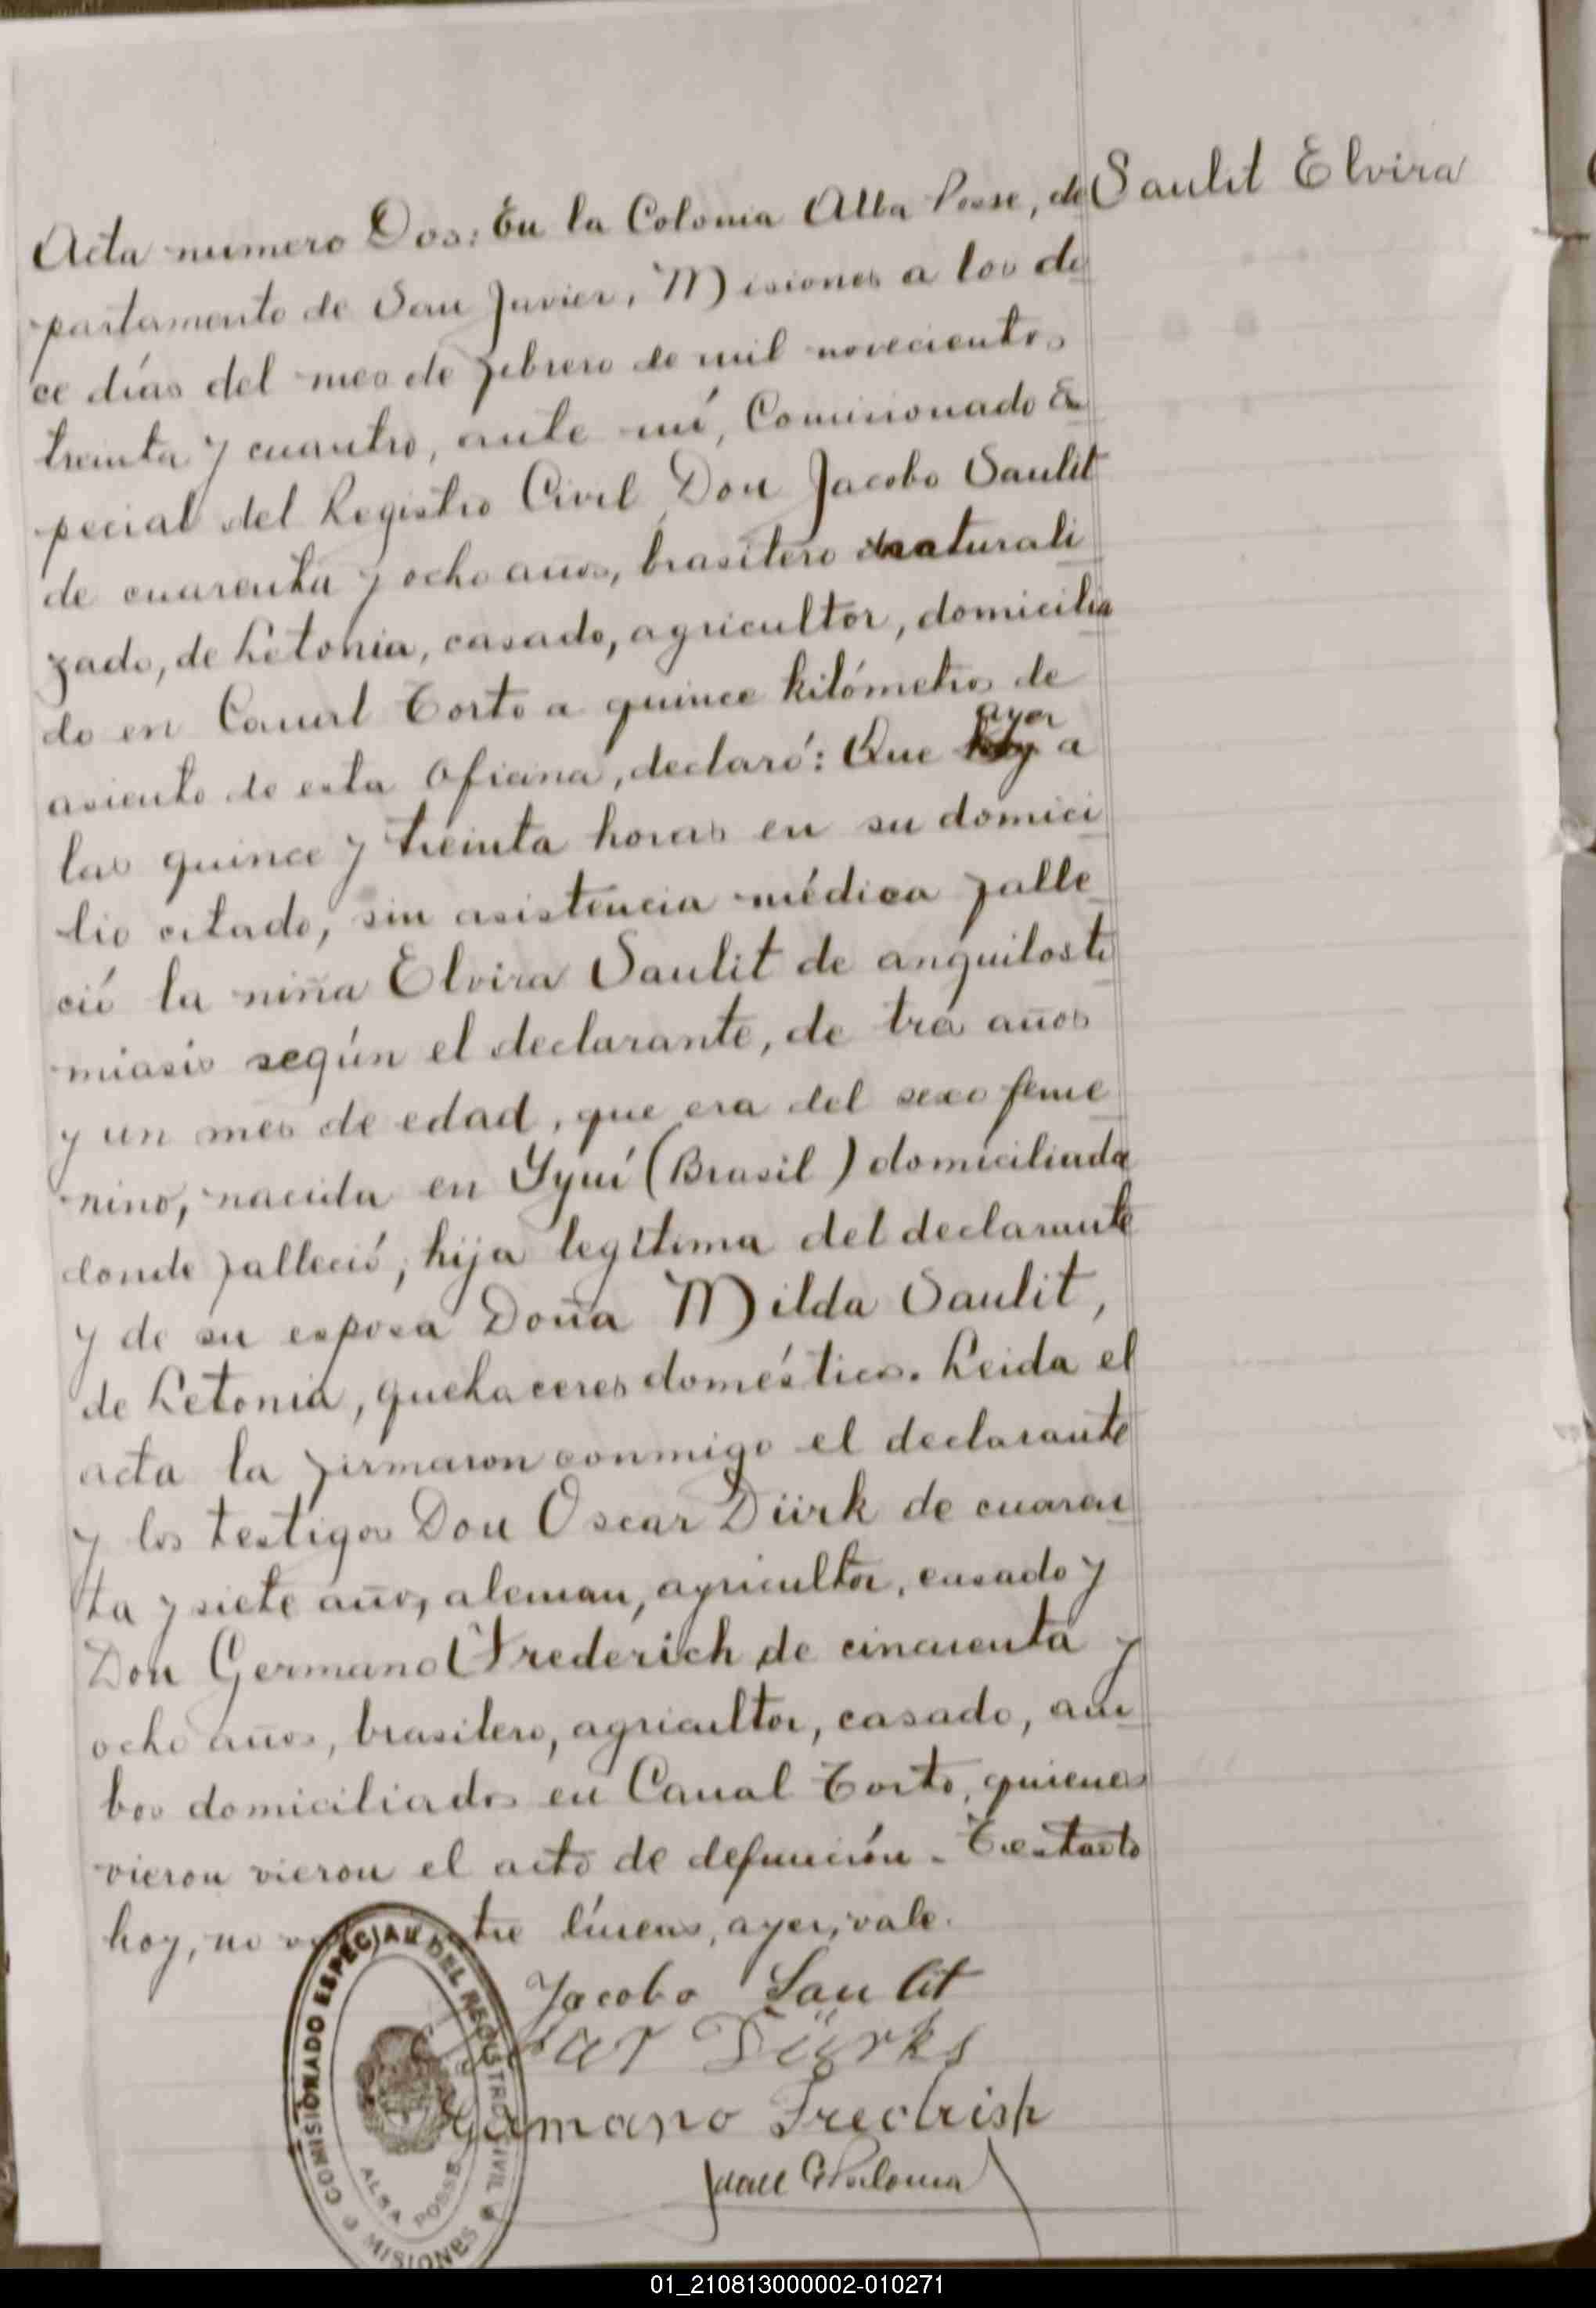 Saulit Elvira
Acta numero Dos: En la Colonia Alba Posse, de
partamento de San Javier, Misiones a los do
ce días del mes de febrero de mil novecientos
treinta y cuantro, ante mí, Comisionado Es
pecial del Registro Civil, Don Jacobo Saulit
de cuarenta y ocho años, brasilero naturali
zado, de Letonia, casado, agricultor, domicilia
do en Canal Torto a quince kilómetros de
ayer
asiento de esta oficina, declaró: Que hoy a
las quince y treinta horas en su domici
lio citado, sin asistencia médica falle
ció la niña Elvira Saulit de anquilosto
miasis según el declarante, de tres años
y un mes de edad, que era del sexo feme
nino, nacida en Yyuí (Brasil) domiciliada
donde falleció, hija legítima del declarante
y de su esposa Doña Milda Saulit,
de Letonia, quehaceres domésticos. Leida el
acta la firmaron conmigo el declarante
y los testigos Don Oscar Dürk de cuaren
ta y siete años, aleman, agricultor, casado y
Don Germano Frederich de cincuenta y
ocho años, brasilero, agricultor, casado, am
bos domiciliados en Canal Torto, quienes
vieron vieron el acto de defunción. - Testado
hoy, no tre líneas, ayer, vale.
Jacobo Saulit
Dürks
Germano Fredrish
Juan
COMISIONADO ESPECIAL DEL REGISTRO CIVIL
ALBA POSSE
MISIONES
01_210813000002-010271